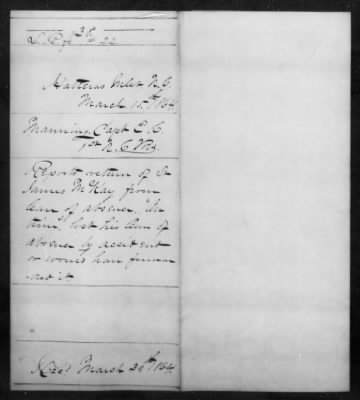 28
22
Hatteras Inlet N.C.
March 15th/64
Manning, Capt E. C.
1st N.C. Vols
Reports return of Lt
James McKay from
leave of absence, "On
time", lost his leave of
absence by accident
or would have forwar
-ded it.
Recd March 24th/64